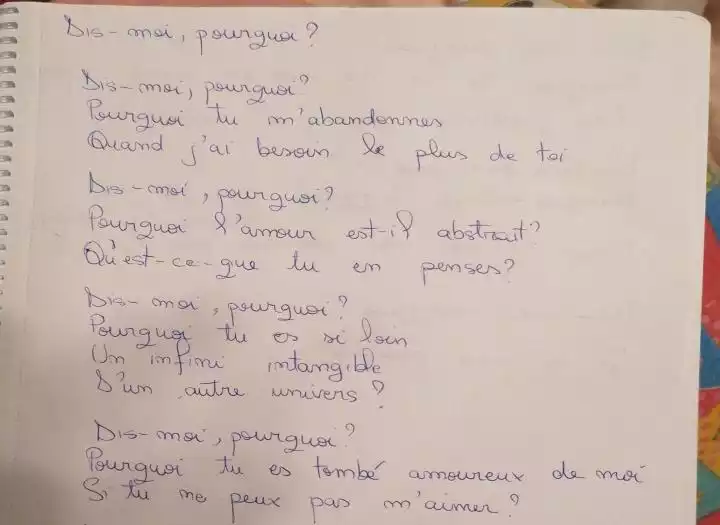 Dis-moi, pourquoi?
Dis-moi, pourquoi?
Pourquoi tu m'abandonnes
Quand j'ai besoin le plus de toi
Dis-moi, pourquoi?
Pourquoi l'amour est-il abstrait?
Qu'est-ce-que tu en penses?
Dis-moi, pourquoi?
Pourquoi tu es si loin
Un infini intangible
D'un autre univers?
Dis-moi, pourquoi?
Pourquoi tu es tombé amoureux de moi
Si tu ne peux pas m'aimer?